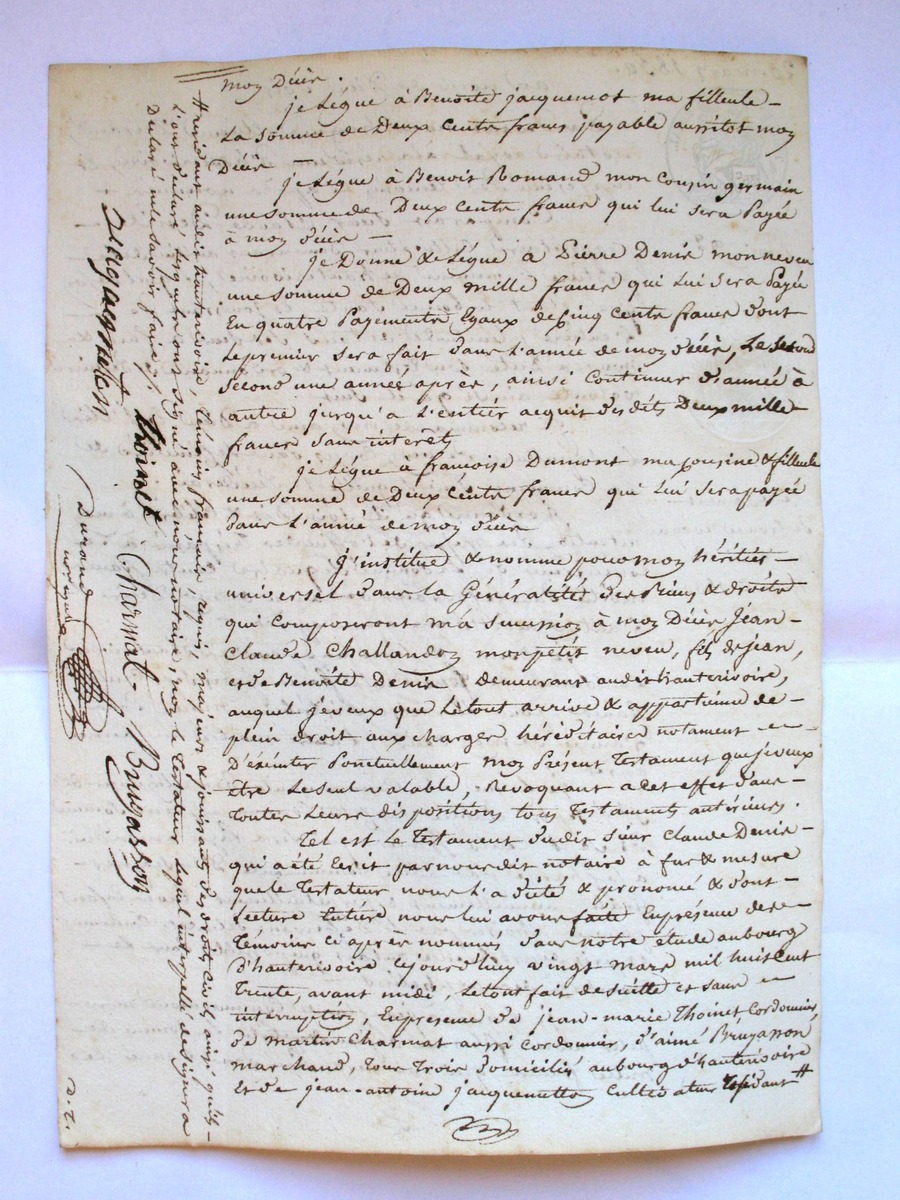 moy Décès.
je Légue à Benoite jacquemot ma filleule -
La somme de Deux Cents francs payable aussitot moy
Décès -
je Légue à Benoit Romand mon Cousin germain
une somme de Deux Cents francs qui lui sera Payée
à moy décès -
je Donne & Légue à Pierre Denis mon neveu
une somme de Deux mille francs qui Lui sera Payée
En quatre Payements Egaux de Cinq Cents francs dont
Le premier sera fait dans L'année de moy décès, Le second
une année après, ainsi Continuer d'année à
autre jusqu'a L'entier acquit desdits Deux mille
francs sans interêts
je Légue à francoise Dumont ma Cousine & filleule
une somme de Deux Cents francs qui Lui sera payée
dans L'année de moy décès
J'institue & nomme pour moy héritier -
universel dans La Généralité des Biens & droits
qui Composeront ma succession à moy Décès Jean-
Claude Challandoy mon petit neveu, fils de jean,
et de Benoite Denis Demeurant audit hauterivoire,
auquel je veux que Le tout arrive & appartienne de
plein droit aux charges héréditaires notament -
D'executer Ponctuellement moy Présent Testament que je veux
Etre Le seul valable, Revoquant a Cet effet dans
Toutes Leurs dispositions tous Testaments antérieurs.
Tel est Le Testament dudit sieur Claude Denis -
qui a été Ecrit par nous dit notaire à fur & mesure
que Le Testateur nous L'a dicté & prononcé & dont -
Lecture Entière nous Lui avons faite En présence des
Témoins Ci après nommés dans notre étude au bourg
D'hauterivoire Cejourd'huy vingt mars mil huit Cent
Trente, avant midi, Le tout fait de suitte et sans
interruption, En présence de jean-marie Thoinet Cordonnier,
de martin Charmat aussi Cordonnier, d'aimé Bruyasson
marchand, tous Trois domiciliés au bourg d'hauterivoire
Et de jean-antoine jacquemetton Cultivateur Residant #
# residant audit hauterivoire, Témoins français, requis, majeurs & jouissants des droits Civils, ainsi qu'ils -
L'ont déclaré Lesquels ont signé avec nous notaire, noy le Testateur Lequel interpellé de signer a
Declaré ne le savoir faire /.
jacquemetton
thoinet Charmat. Bruyasson
Durand
notaire
D. T.